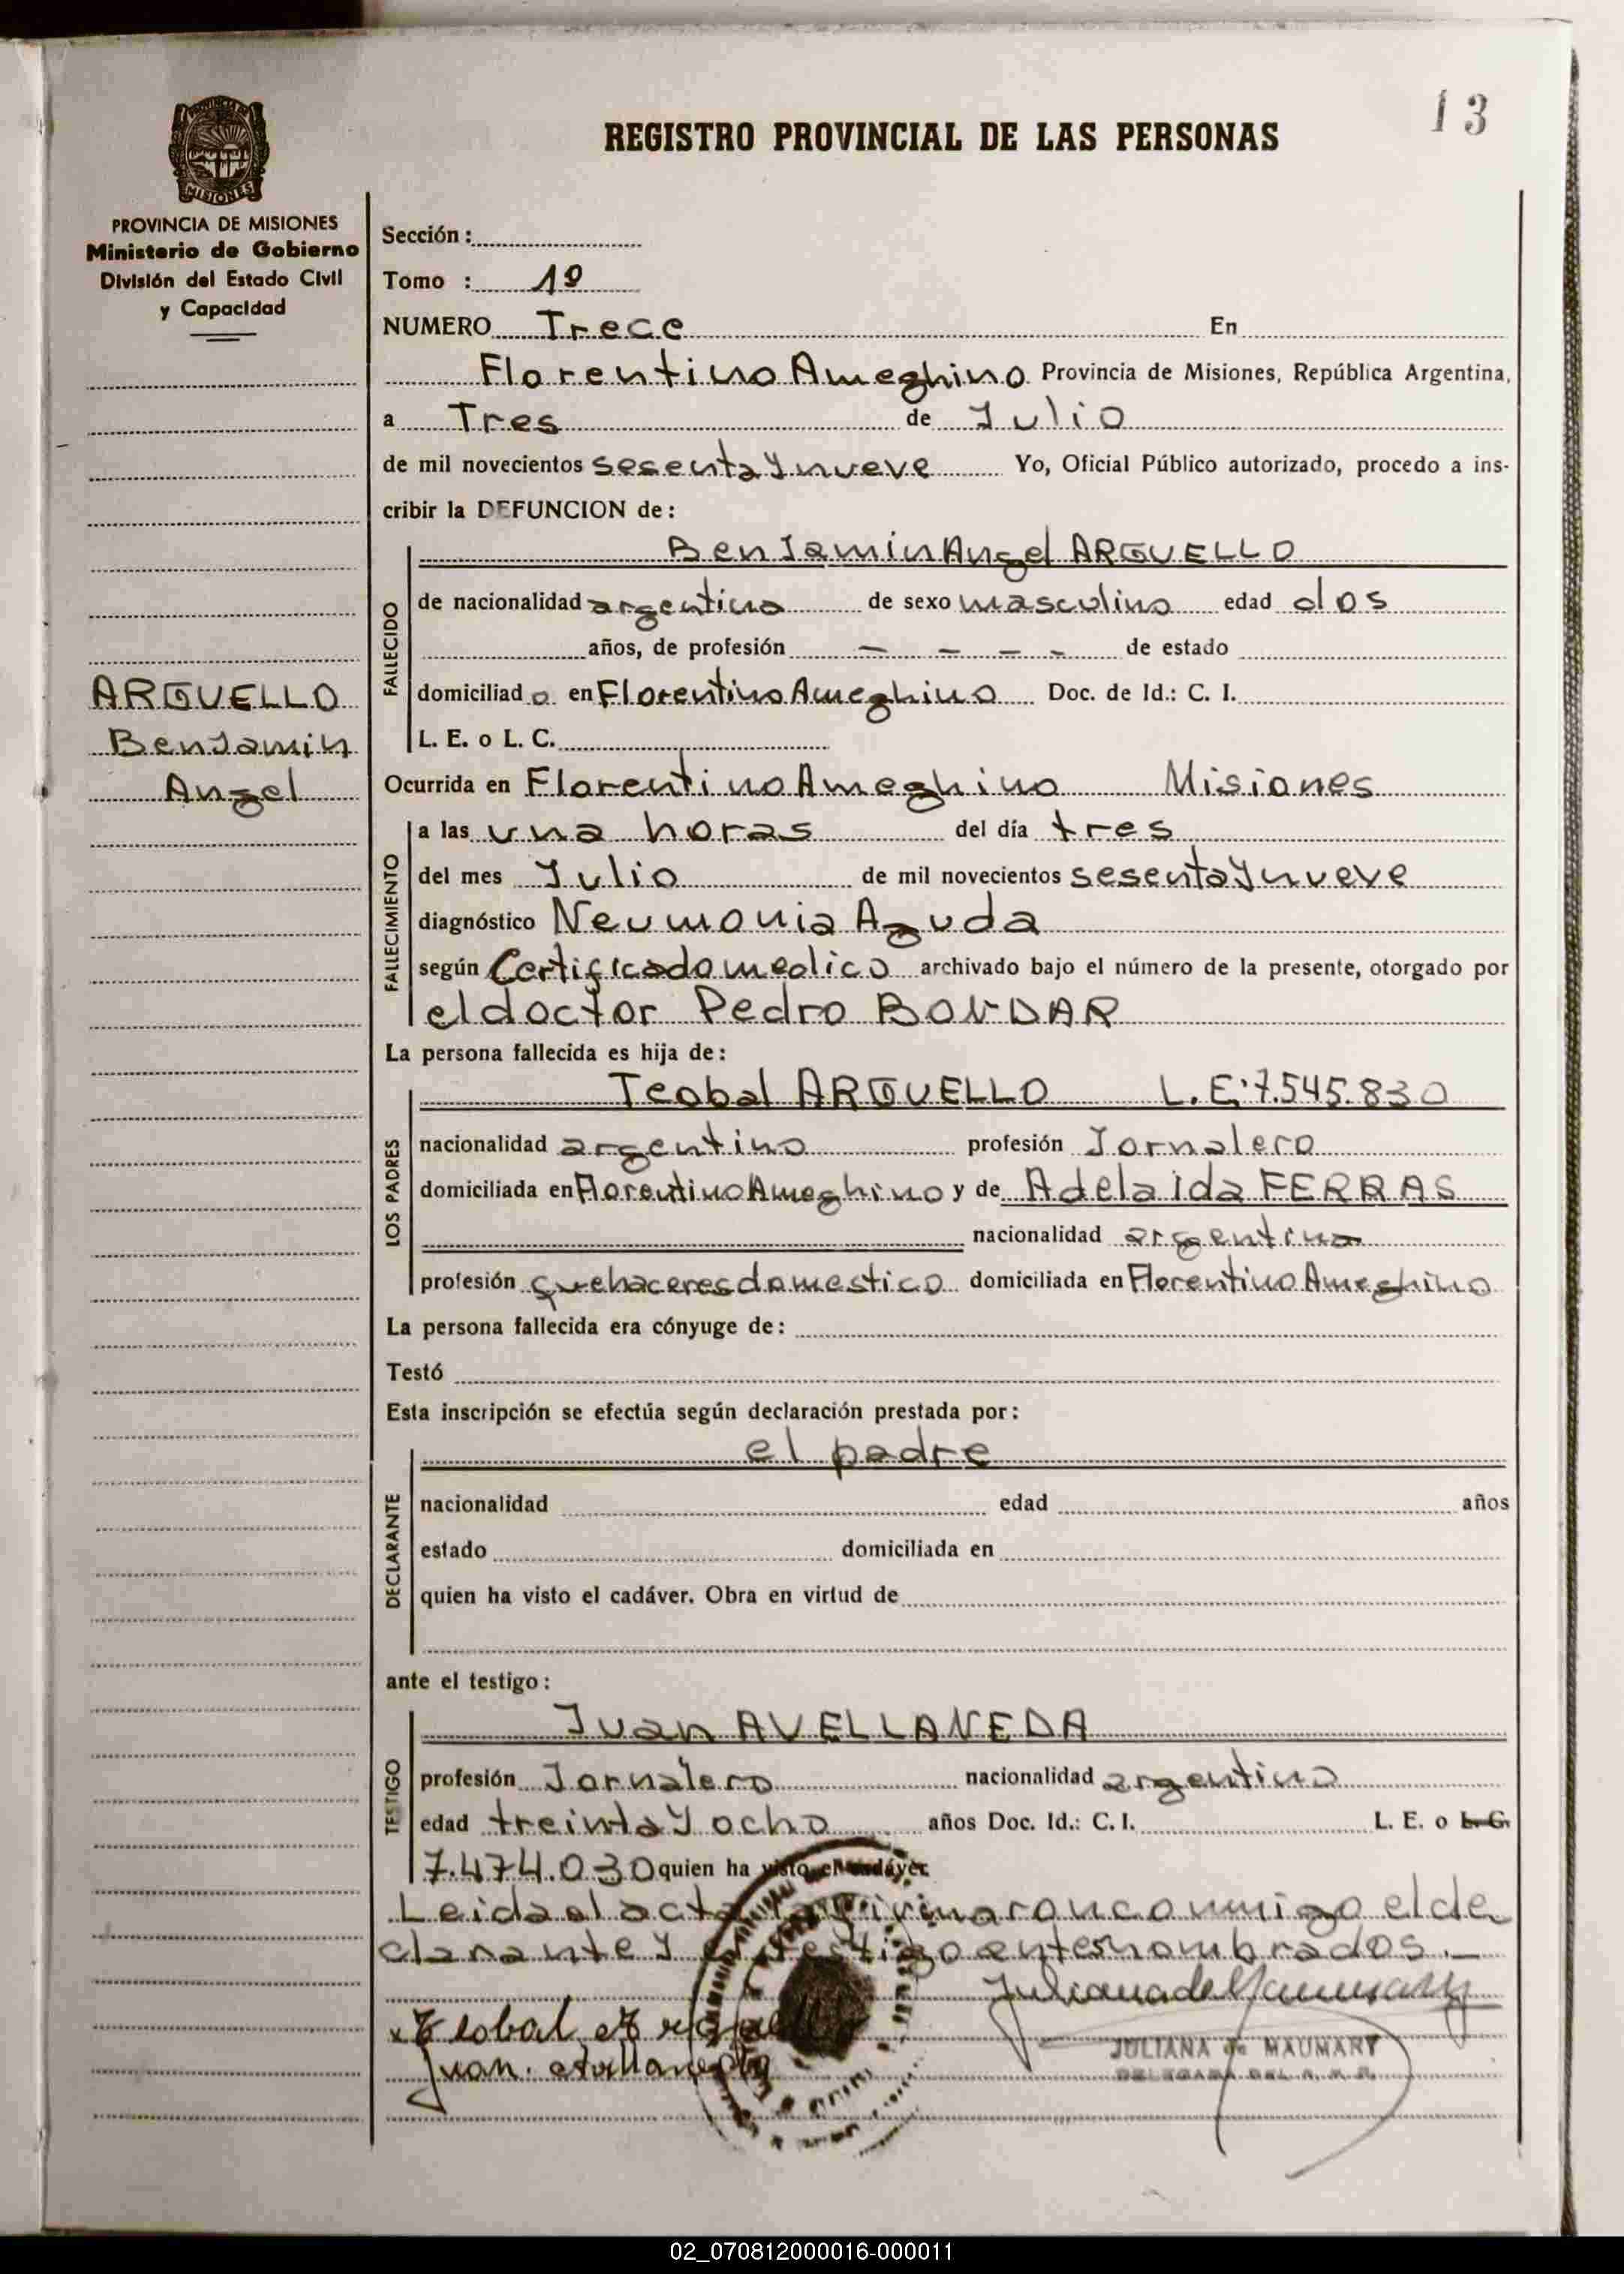 13
REGISTRO PROVINCIAL DE LAS PERSONAS
PROVINCIA DE MISIONES
Ministerio de Gobierno
División del Estado Civil
y Capacidad
ARGUELLO
Benjamin
Angel
Sección :
Tomo : 1º
NUMERO Trece En
Florentino Ameghino Provincia de Misiones, República Argentina,
a Tres de Julio
de mil novecientos sesenta y nueve Yo, Oficial Público autorizado, procedo a ins-
cribir la DEFUNCION de :
FALLECIDO
Benjamin Angel ARGUELLO
de nacionalidad argentino de sexo masculino edad dos
años, de profesión — — — — de estado
domiciliad o en Florentino Ameghino Doc. de Id.: C. I.
L. E. o L. C.
Ocurrida en Florentino Ameghino Misiones
FALLECIMIENTO
a las una horas del día tres
del mes Julio de mil novecientos sesenta y nueve
diagnóstico Neumonia Aguda
según Certificado medico archivado bajo el número de la presente, otorgado por
el doctor Pedro BONDAR
La persona fallecida es hija de :
LOS PADRES
Teobal ARGUELLO L. E: 7.545.830
nacionalidad argentino profesión Jornalero
domiciliada en Florentino Ameghino y de Adelaida FERRAS
nacionalidad argentina
profesión quehaceres domestico domiciliada en Florentino Ameghino
La persona fallecida era cónyuge de :
Testó
Esta inscripción se efectúa según declaración prestada por :
DECLARANTE
el padre
nacionalidad edad años
estado domiciliada en
quien ha visto el cadáver. Obra en virtud de
ante el testigo :
TESTIGO
Juan AVELLANEDA
profesión Jornalero nacionalidad argentino
edad treinta y ocho años Doc. Id.: C. I. L. E. o L. C.
7.474.030 quien ha visto el cadáver
Leida el acta conmigo el de
clarante y el testigo antes nombrados. —
Juliana de Maumary
Teobal
JULIANA de MAUMARY
Juan Avellaneda
DELEGADA DEL R. P. P.
02_070812000016-000011